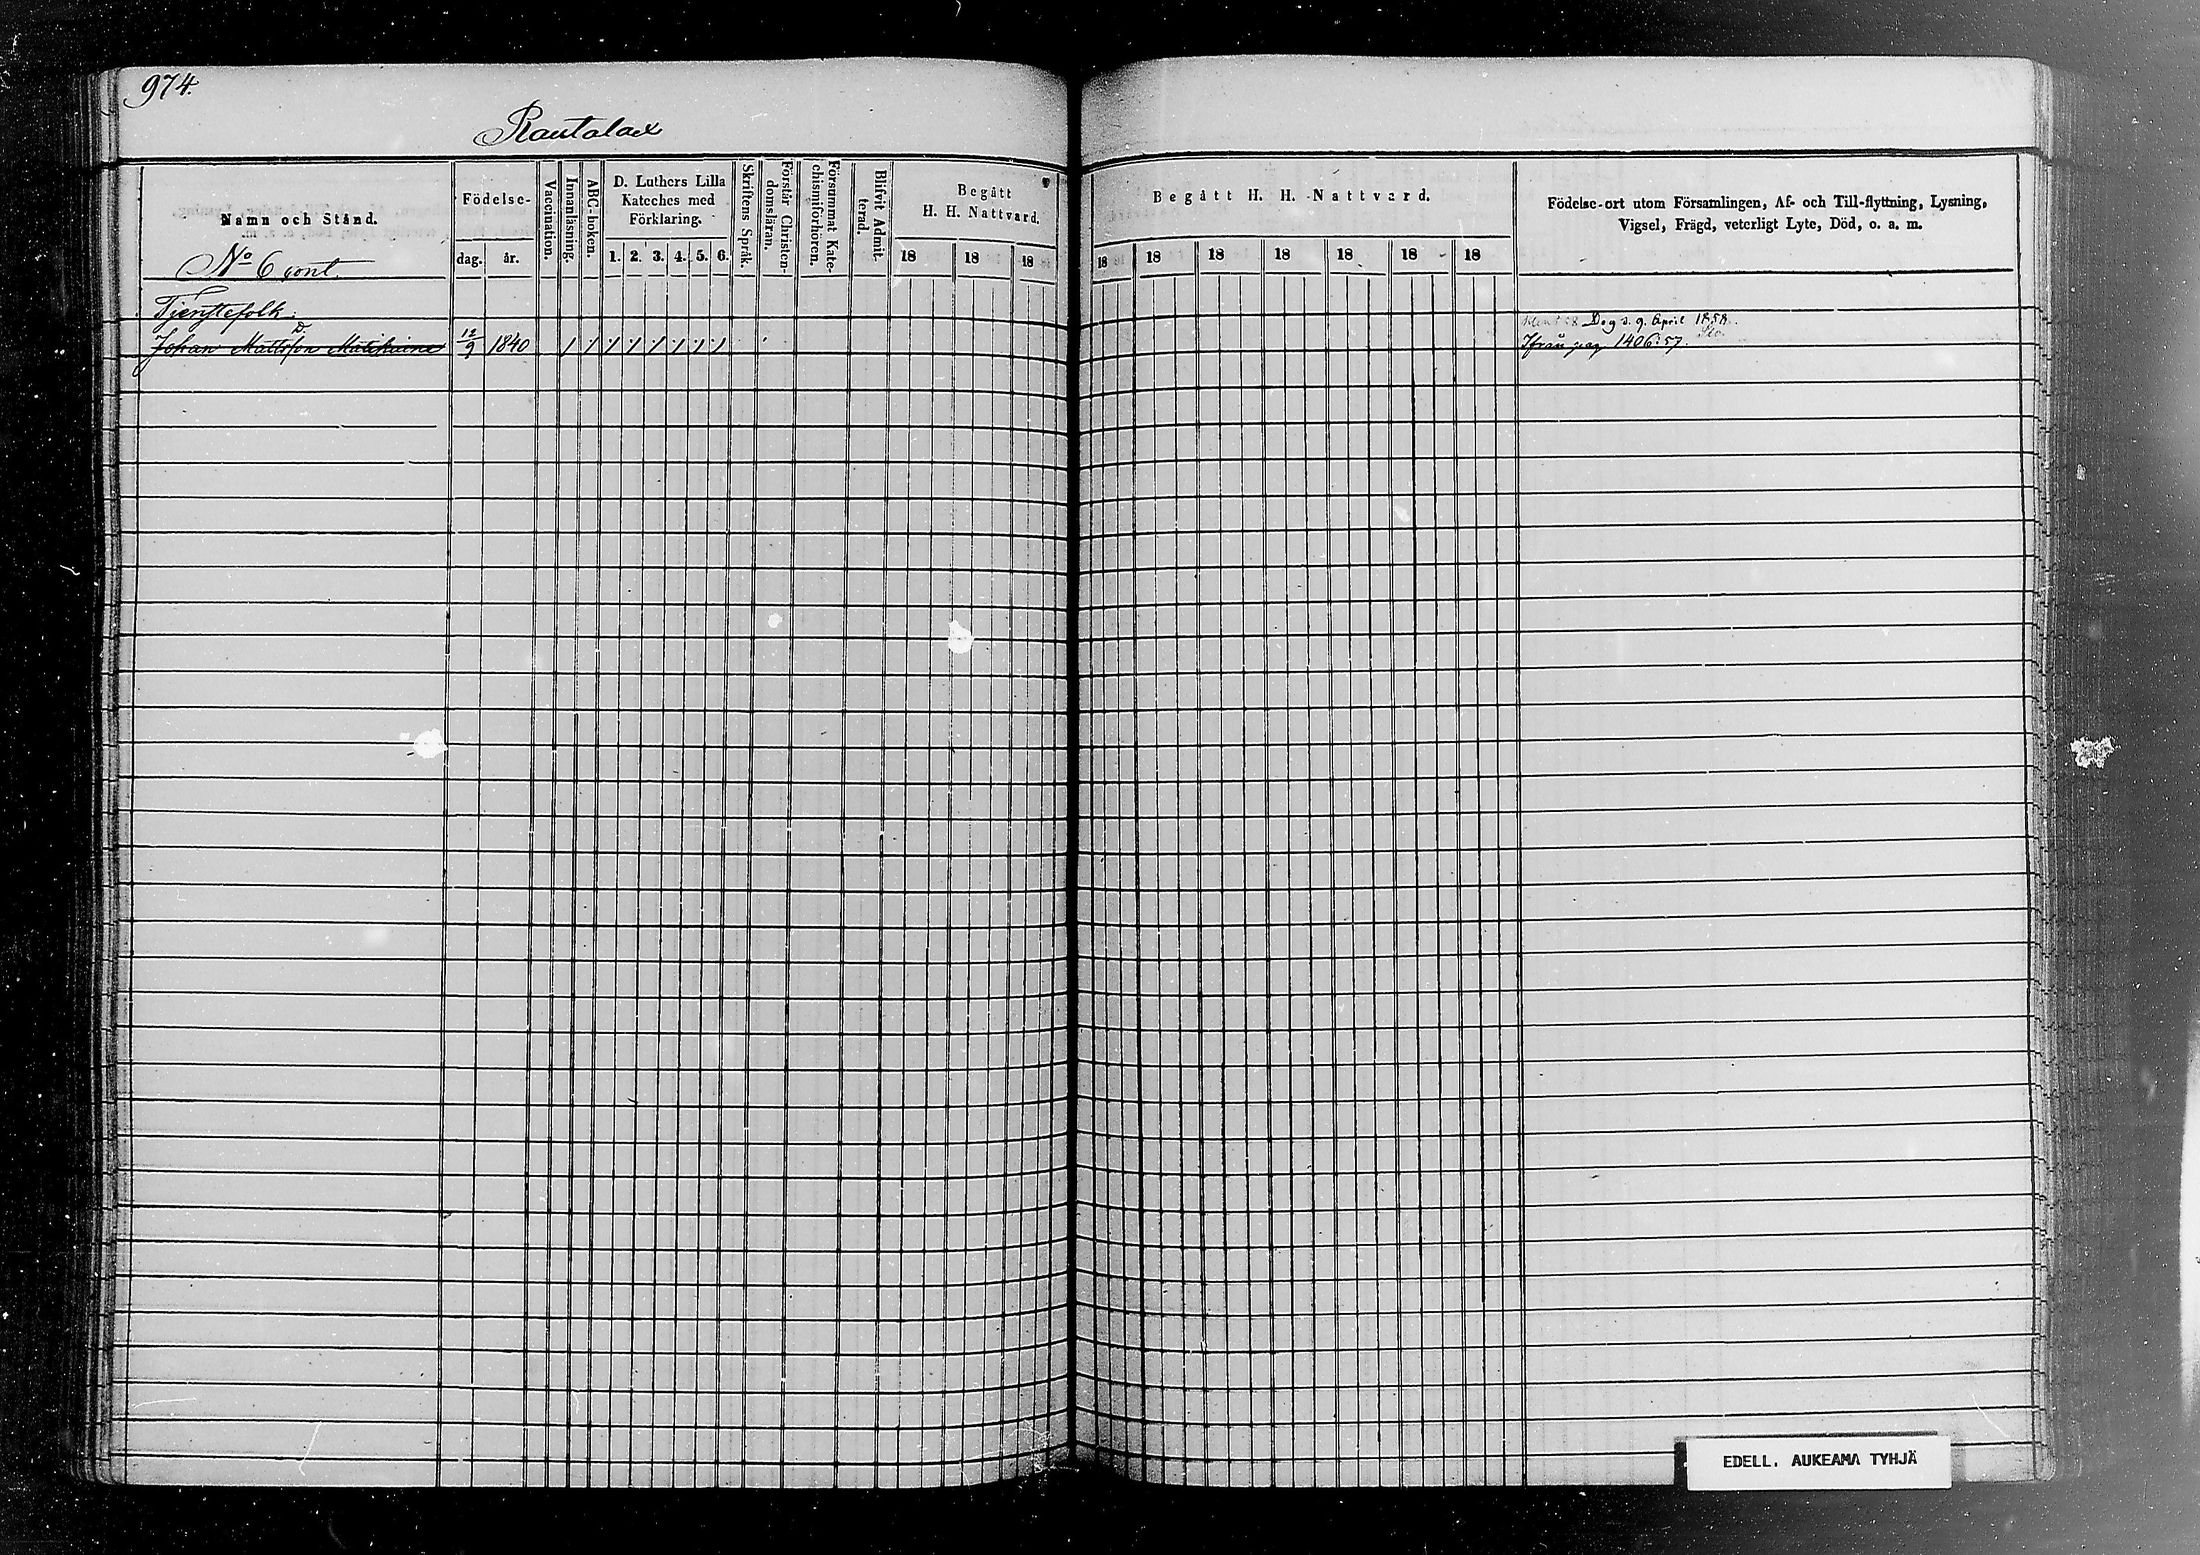 974.
Rautalax
Namn och Stånd.
No 6 cont.
Födelse-
dag. år.
Vaccination.
Innanläsning.
ABC-boken.
D. Luthers Lilla
Kateches med
Förklaring.
1. 2. 3. 4. 5. 6.
Skriftens Språk.
Förstår Christen-
domsläran.
Försummat Kate-
chismiförhören.
Blifvit Admit-
terad.
Begått
H. H. Nattvard.
18 18 18
Begått H. H. Nattvard.
18 18 18 18 18 18 18
Födelse-ort utom Församlingen, Af- och Till-flyttning, Lysning,
Vigsel, Frägd, veterligt Lyte, Död, o. a. m.
Tjenstefolk:
D.
Johan Mattsson Matikaine 12/9 1840
Dog d. 9. April 1858.
Ifrån pag 1406:57.
EDELL. AUKEAMA TYHJÄ